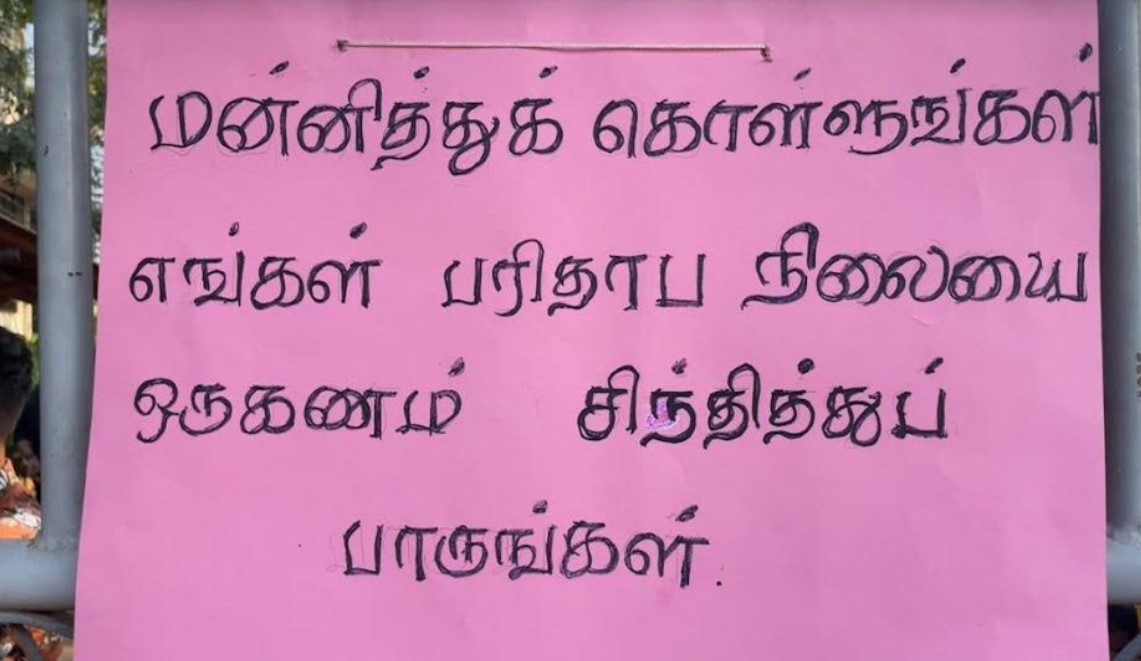 மன்னித்துக் கொள்ளுங்கள்
எங்கள் பரிதாப நிலையை
ஒருகணம் சிந்தித்துப்
பாருங்கள்.